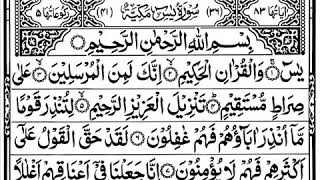 اٰیَاتُهَا ۸۳ (۳۶) سُوْرَةُ یٰسٓ مَكِّیَّةٌ (۴۱) رُكُوْعَاتُهَا ۵
بِسْمِ اللّٰهِ الرَّحْمٰنِ الرَّحِیْمِ
یٰسٓ ۚ﴿۱﴾ وَالْقُرْاٰنِ الْحَكِیْمِ ۙ﴿۲﴾ اِنَّكَ لَمِنَ الْمُرْسَلِیْنَ ۙ﴿۳﴾ عَلٰی
صِرَاطٍ مُّسْتَقِیْمٍ ؕ﴿۴﴾ تَنْزِیْلَ الْعَزِیْزِ الرَّحِیْمِ ۙ﴿۵﴾ لِتُنْذِرَ قَوْمًا
مَّاۤ اُنْذِرَ اٰبَآؤُهُمْ فَهُمْ غٰفِلُوْنَ ﴿۶﴾ لَقَدْ حَقَّ الْقَوْلُ عَلٰۤی
اَكْثَرِهِمْ فَهُمْ لَا یُؤْمِنُوْنَ ﴿۷﴾ اِنَّا جَعَلْنَا فِیْۤ اَعْنَاقِهِمْ اَغْلٰلًا